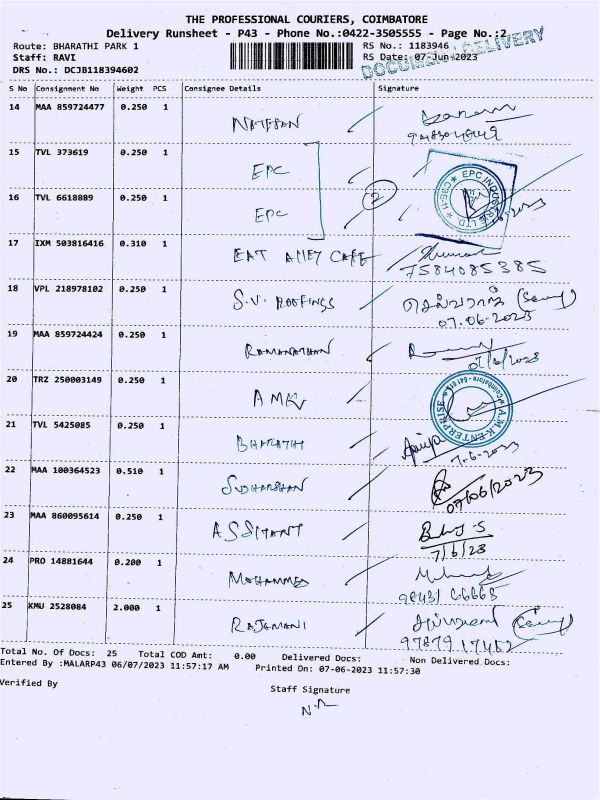 THE PROFESSIONAL COURIERS, COIMBATORE
Delivery Runsheet - P43 - Phone No.:0422-3505555 - Page No.:2
Route: BHARATHI PARK 1
RS No.: 1183946
Staff: RAVI
RS Date: 07-Jun-2023
DRS No.: DCJB118394602
DOCUMENT DELIVERY
S No Consignment No Weight PCS Consignee Details Signature
14 MAA 859724477 0.250 1 NATESAN
15 TVL 373619 0.250 1 EPC
16 TVL 6618889 0.250 1 EPC
2
EPC INDUSTRIE LTD
17 IXM 503816416 0.310 1 EAT AMEY CAFE
7584085385
18 VPL 218978102 0.250 1 S.V. ROOFINGS செல்வராஜ்
07.06-2023
19 MAA 859724424 0.250 1 RAMANATHAN
7/6/2023
20 TRZ 250003149 0.250 1 AMK
A.M.K-ENTERPRISE Coimbatore
21 TVL 5425085 0.250 1 BHARATHI
7-6-2023
22 MAA 100364523 0.510 1 SUDHARSHAN
07/06/2023
23 MAA 860095614 0.250 1 ASSITANT
7/6/23
24 PRO 14881644 0.200 1 MOHAMMED
98431 66668
25 KMU 2528084 2.000 1 RAJAMANI
97879 17452
Total No. Of Docs: 25 Total COD Amt: 0.00 Delivered Docs: Non Delivered Docs:
Entered By :MALARP43 06/07/2023 11:57:17 AM Printed On: 07-06-2023 11:57:30
Verified By
Staff Signature